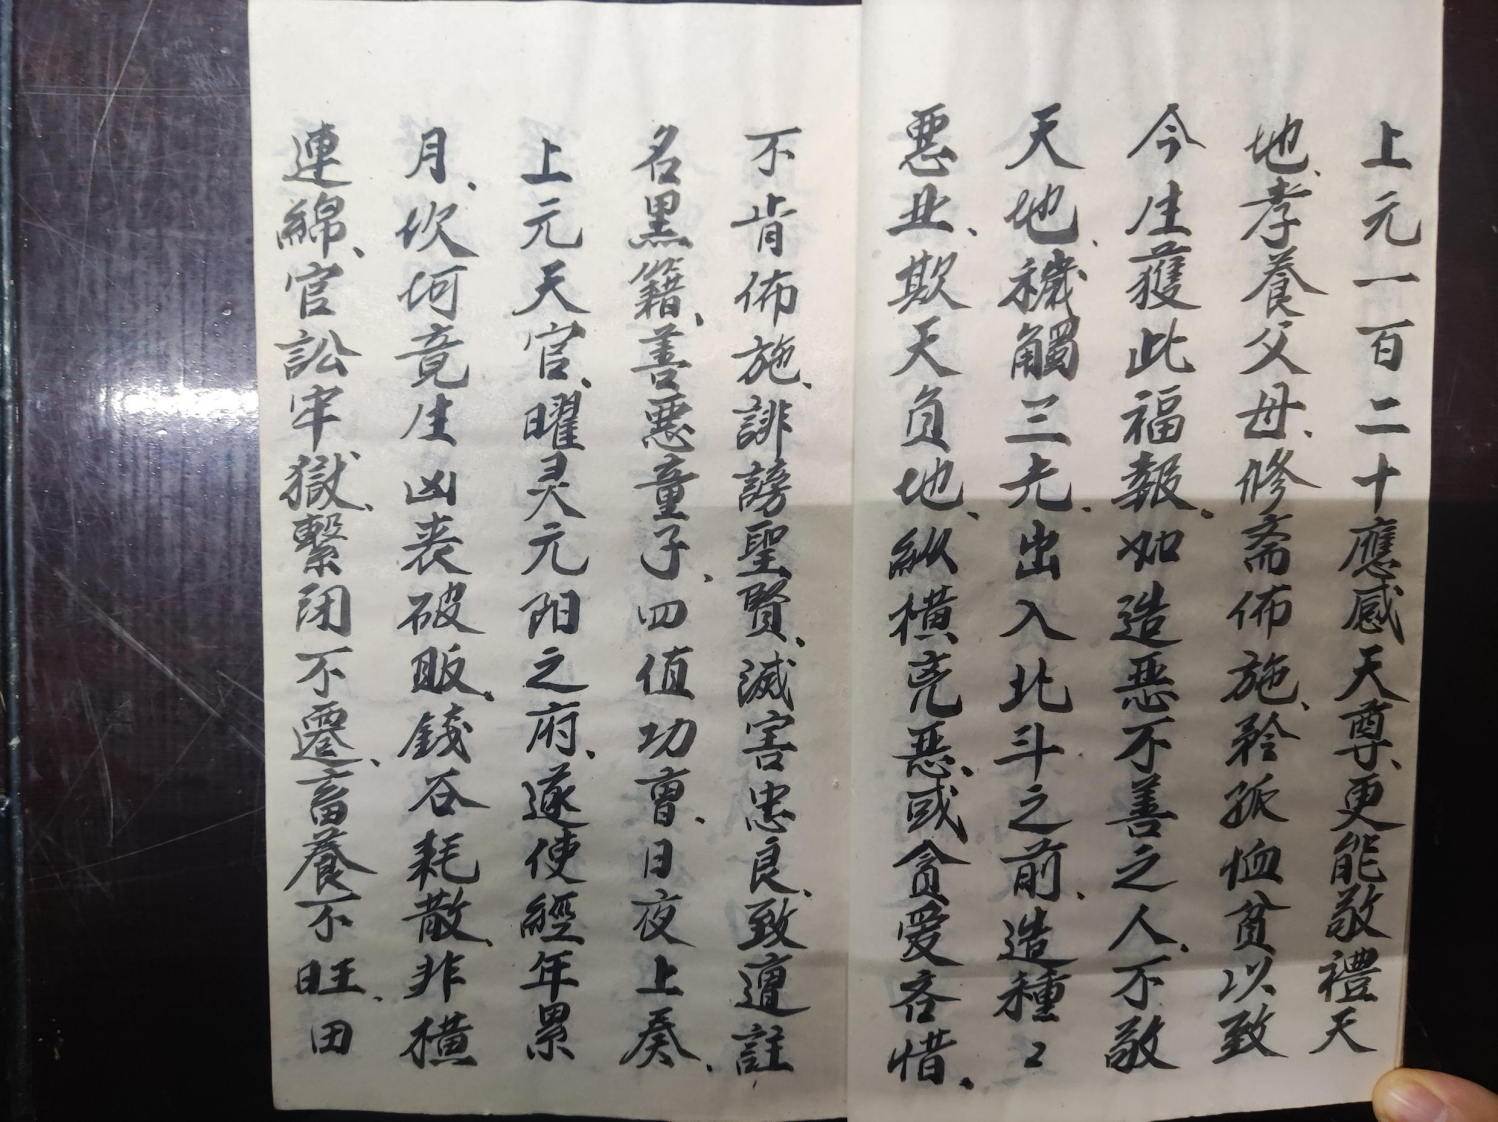 上元一百二十應感天尊、更能敬禮天
地、孝養父母、修斋佈施、矜孤恤貧以致
今生獲此福報、如造恶不善之人、不敬
天地、穢觸三光、出入北斗之前、造種々
惡业、欺天负地、纵橫兇恶、或貪爱吝惜、
不肯佈施、誹謗聖賢、滅害忠良、致遭註
名黑籍、善恶童子、四值功曹、日夜上奏、
上元天官、曜灵元阳之府、遂使經年累
月、坎坷竟生凶丧破敗、錢谷耗散、非橫
連綿、官訟牢獄、繫闭不遷、畜養不旺、田